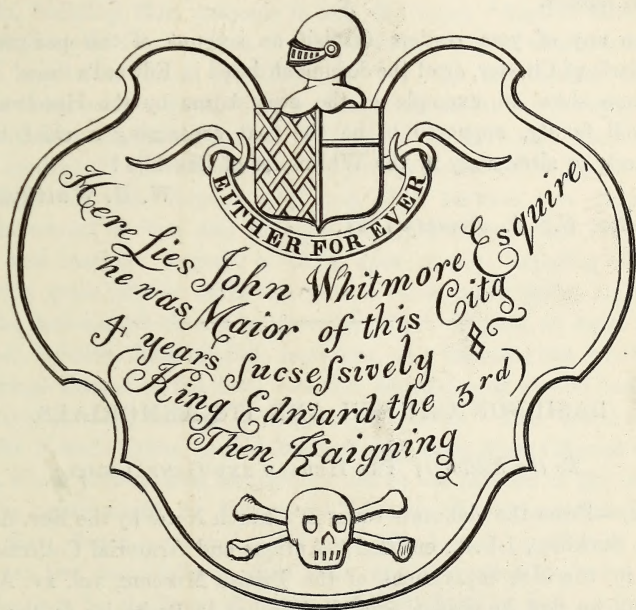 EITHER FOR EVER
Here Lies John Whitmore Esquire,
he was Maior of this City
4 years ſucseſsively &
(King Edward the 3rd)
Then Raigning